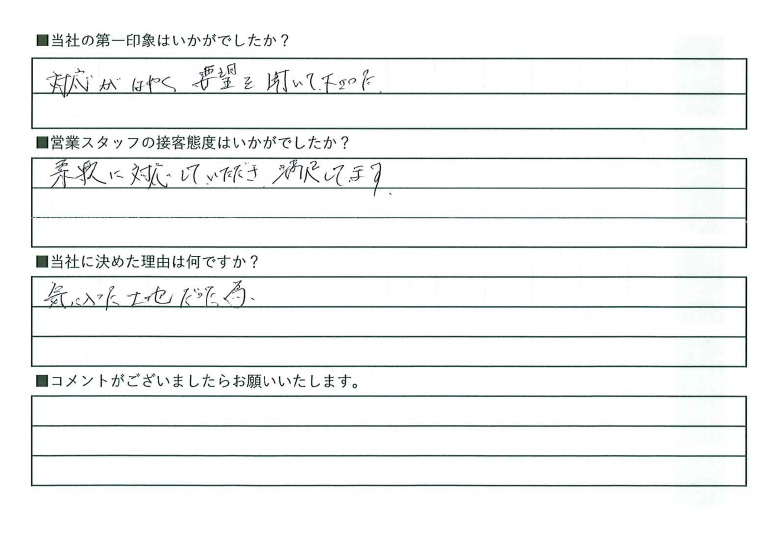 ■当社の第一印象はいかがでしたか？
対応がはやく 要望を聞いて下さった.
■営業スタッフの接客態度はいかがでしたか？
柔軟に対応していただき 満足してます.
■当社に決めた理由は何ですか？
気に入った土地だった為.
■コメントがございましたらお願いいたします。